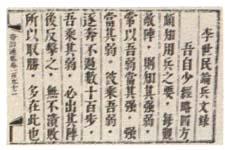 李世民論兵文錄
吾自少經略四方，
頗知用兵之要，每觀
敵陣，則知其強弱，
常以吾弱當其強，強
當其弱。彼乘吾弱，
逐奔不過數十百步，
吾乘其弱，必出其陣
後反擊之，無不潰敗
所以取勝，多在此也